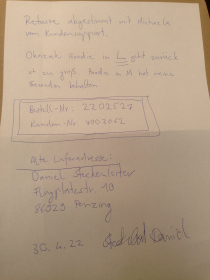 Retoure abgestimmt mit Michaela
vom Kundensupport.
Ohnezahl Hoodie in L geht zurück
ist zu groß. Hoodie in M hat meine
Freundin behalten
Bestell-Nr: 2202527
Kunden-Nr: 4002062
Alte Lieferadresse:
Daniel
Flugplatzstr. 10
86929 Penzing
30.4.22 Daniel